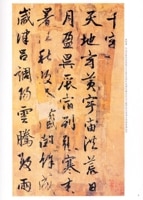 千字文
天地玄黄宇宙洪荒日
月盈昃辰宿列張寒来
暑往秋收冬藏閏餘成
歲律呂調陽雲騰致雨